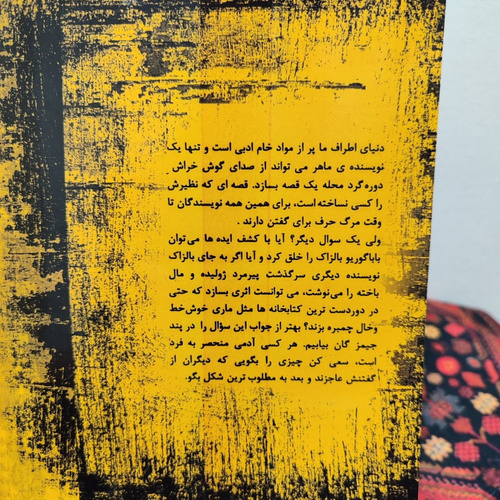 دنیای اطراف ما پر از مواد خام ادبی است و تنها یک
نویسنده ی ماهر می تواند از صدای گوش خراش
دوره گرد محله یک قصه بسازد. قصه ای که نظیرش
را کسی نساخته است، برای همین همه نویسندگان تا
وقت مرگ حرف برای گفتن دارند .
ولی یک سوال دیگر؟ آیا با کشف ایده ها می توان
باباگوریو بالزاک را خلق کرد و آیا اگر به جای بالزاک
نویسنده دیگری سرگذشت پیرمرد ژولیده و مال
باخته را می‌نوشت، می توانست اثری بسازد که حتی
در دوردست ترین کتابخانه ها مثل ماری خوش‌خط
وخال چمبره بزند؟ بهتر از جواب این سؤال را در پند
جیمز گان بیابیم. هر کسی آدمی منحصر به فرد
است، سعی کن چیزی را بگویی که دیگران از
گفتنش عاجزند و بعد به مطلوب ترین شکل بگو.